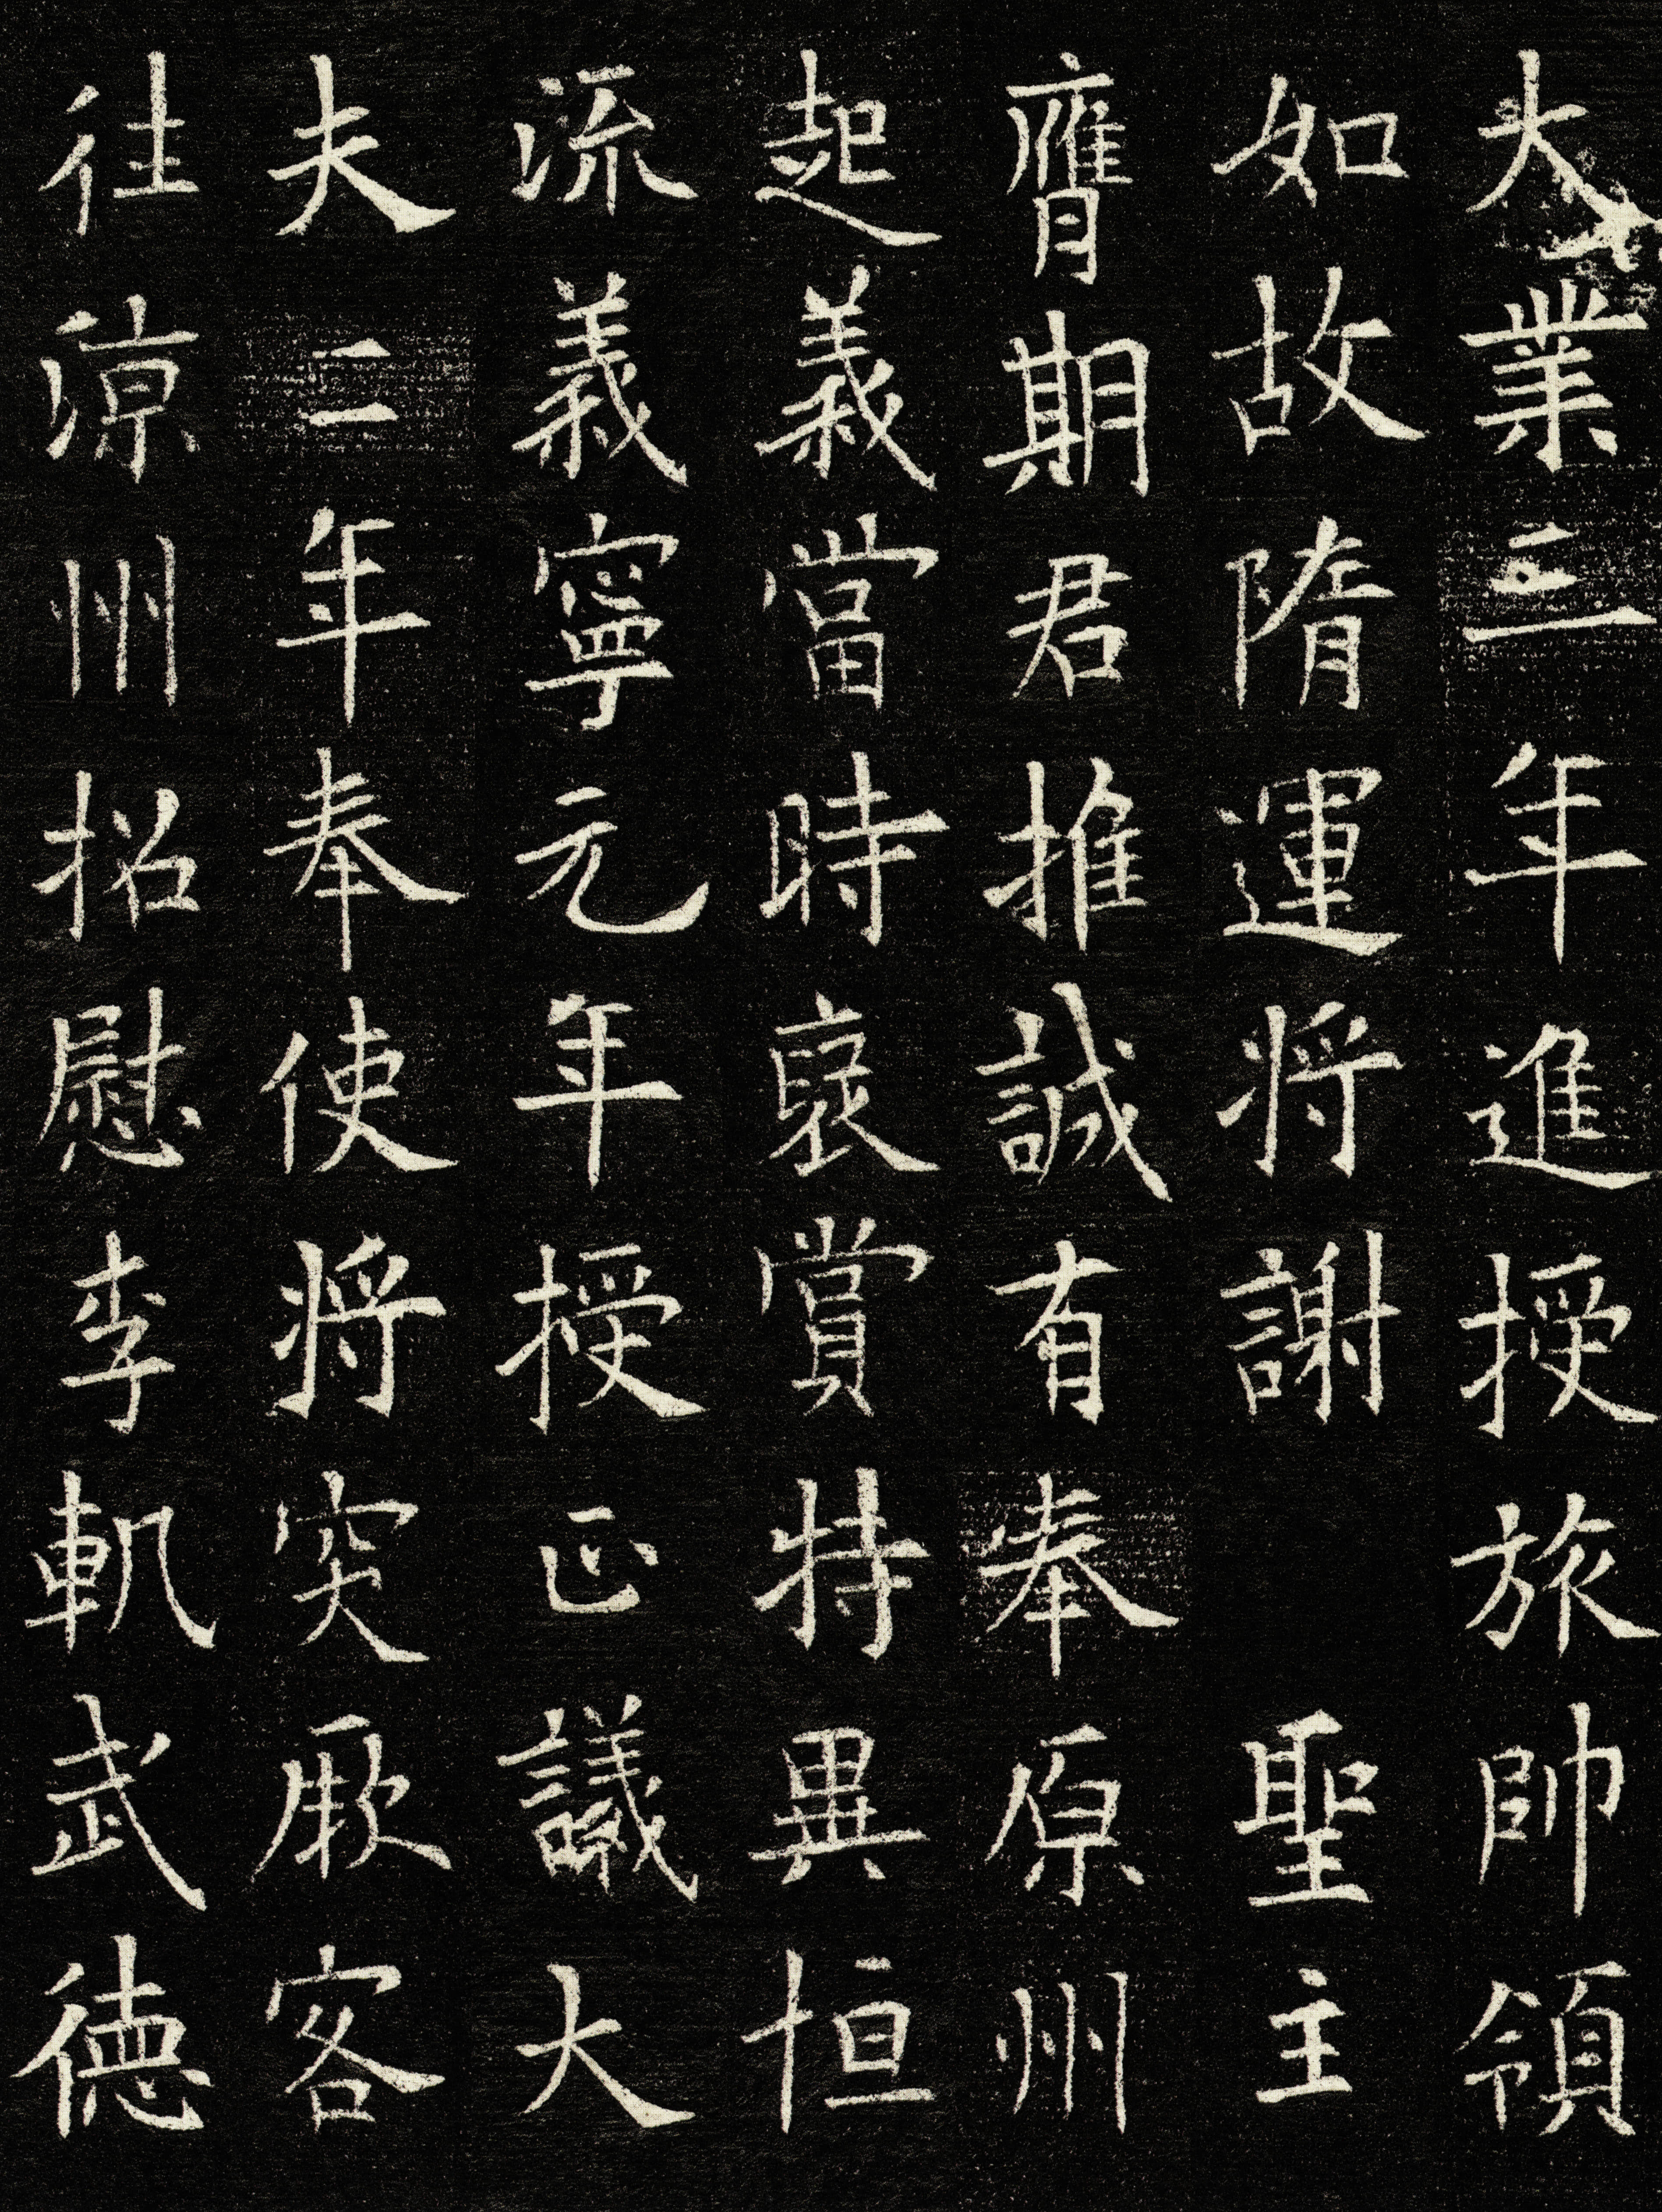 大業三年進授旅帥領
如故隋運將謝聖主
膺期君推誠有奉原州
起義當時裦賞特異恒
流義寧元年授正議大
夫二年奉使將突厥客
往涼州招慰李軌武德